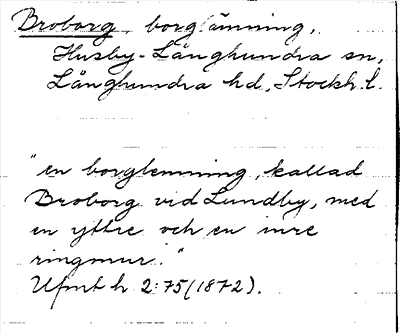 Broborg, borglämning,
Husby-Långhundra sn,
Långhundra hd, Stockh. l.
"en borglemning, kallad
Broborg vid Lundby, med
en yttre och en inre
ringmur."
Ufmt h 2:75 (1872).